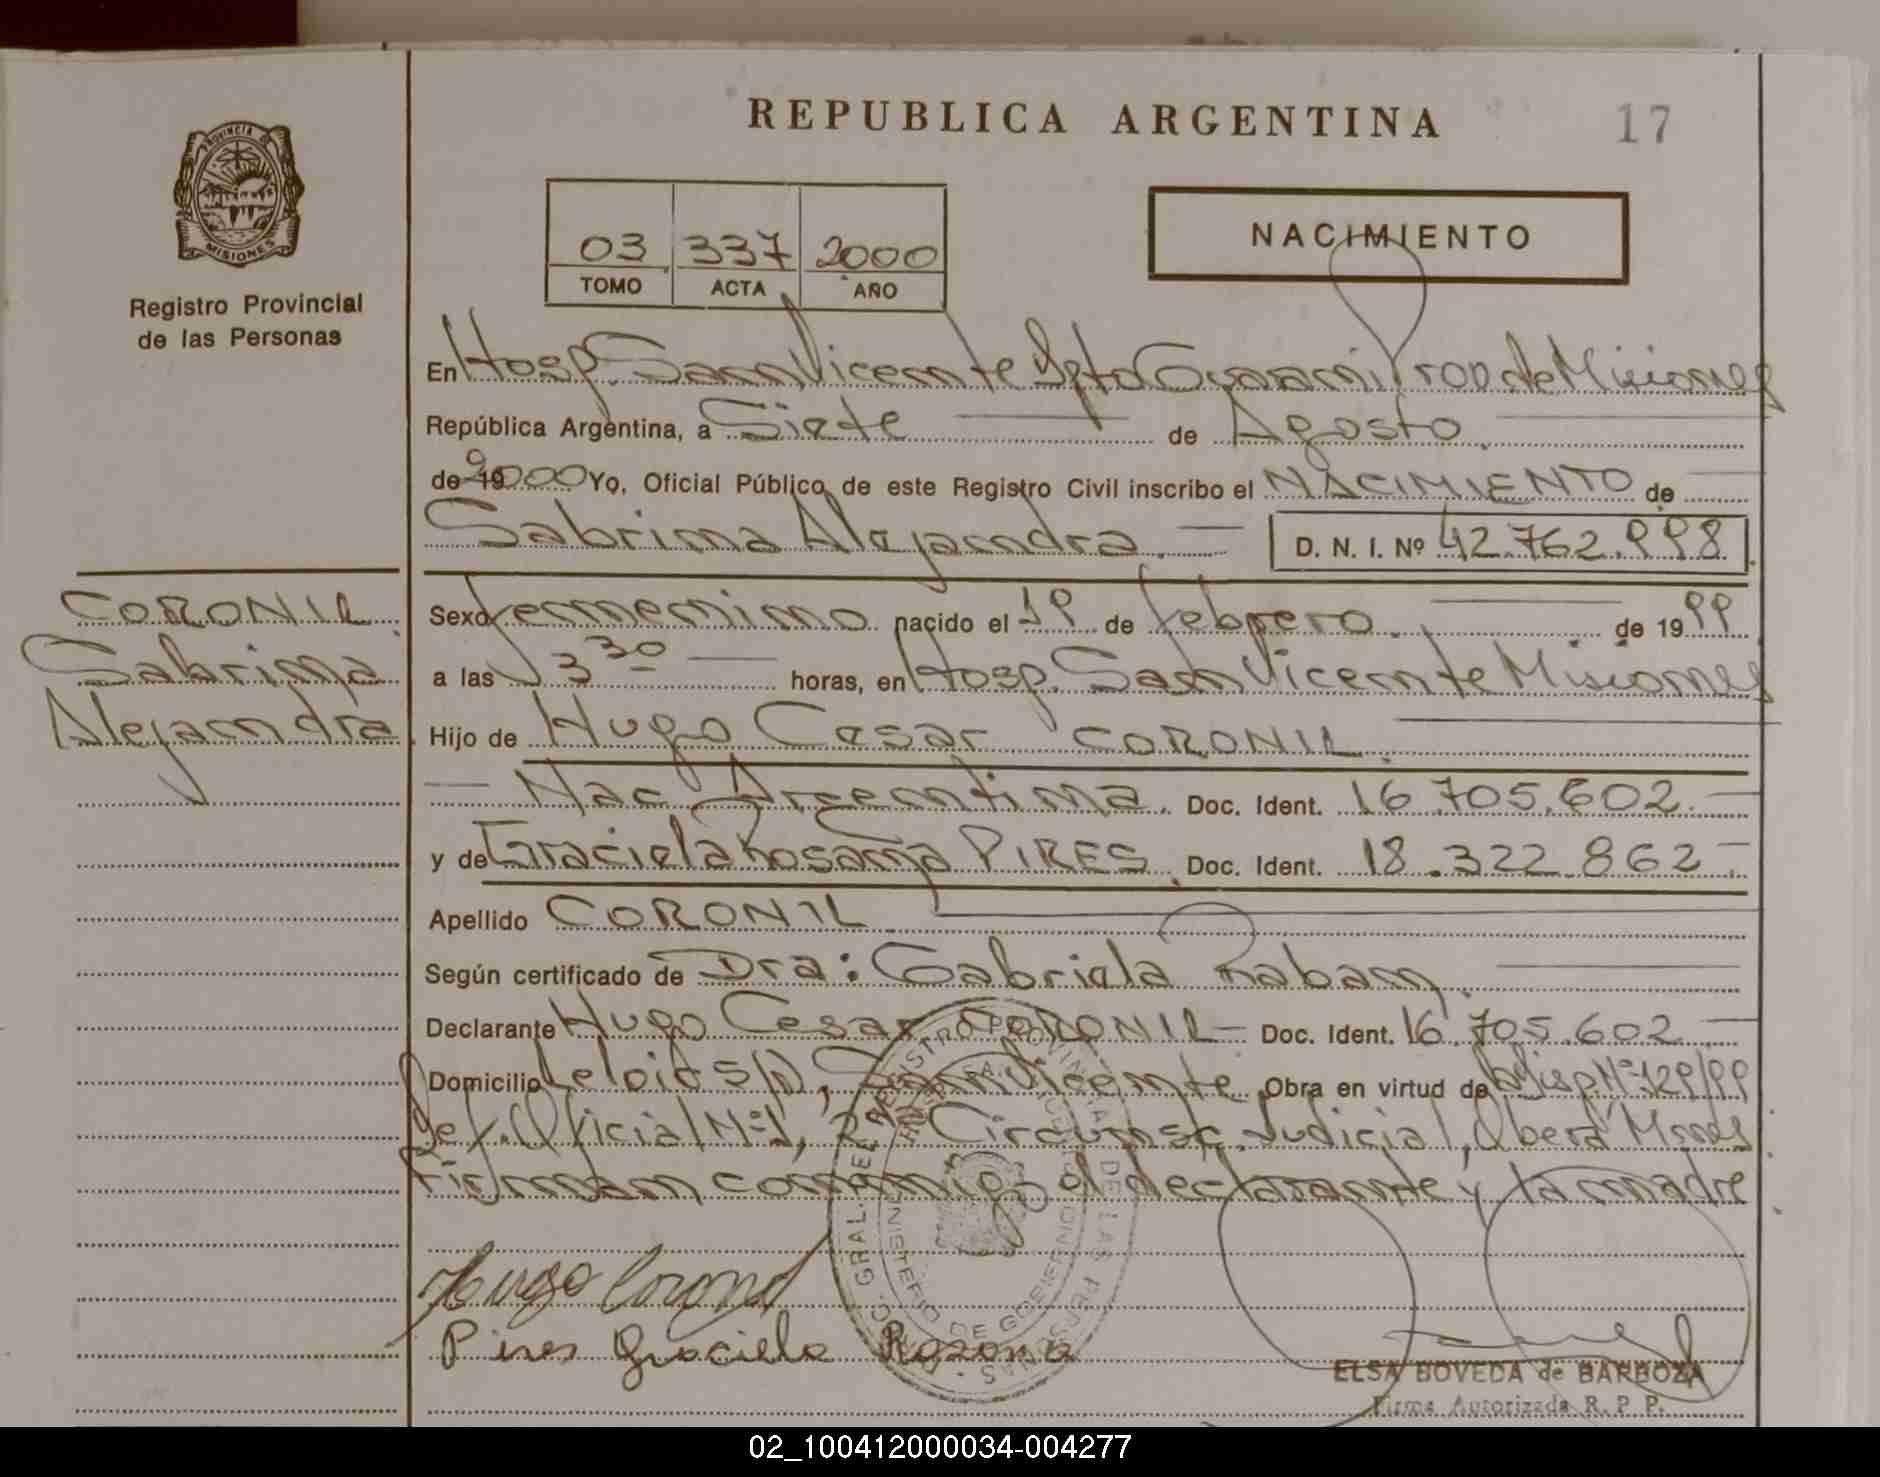 REPUBLICA ARGENTINA
17
PROVINCIA DE
MISIONES
Registro Provincial
de las Personas
03 337 2000
TOMO ACTA AÑO
NACIMIENTO
En Hosp. San Vicente Dpto Guarani Prov de Misiones
República Argentina, a Siete de Agosto
de 2000 Yo, Oficial Público de este Registro Civil inscribo el NACIMIENTO de
Sabrina Alejandra. D. N. I. Nº 42.762.998
CORONIL
Sabrina
Alejandra
Sexo femenino nacido el 19 de febrero de 1999
a las 3 30 horas, en Hosp. San Vicente Misiones
Hijo de Hugo Cesar CORONIL.
Nac Argentina. Doc. Ident. 16.705.602.
y de Graciela Rosana PIRES. Doc. Ident. 18.322.862
Apellido CORONIL
Según certificado de Dra: Gabriela Raban.
Declarante Hugo Cesar CORONIL Doc. Ident. 16.705.602
Domicilio Leloir S/N, San Vicente Obra en virtud de Disp Nº 129/99
Def. Oficial Nº 1, 2 Circunsc. Judicial, Obera Mnes
Firman conmigo el declarante y la madre
Hugo Coronil
Pires Graciela Rosana
REGISTRO PROVINCIAL DE LAS PERSONAS
MINISTERIO DE GOBIERNO
ELSA BOVEDA de BARBOZA
Firma Autorizada R. P. P.
02_100412000034-004277